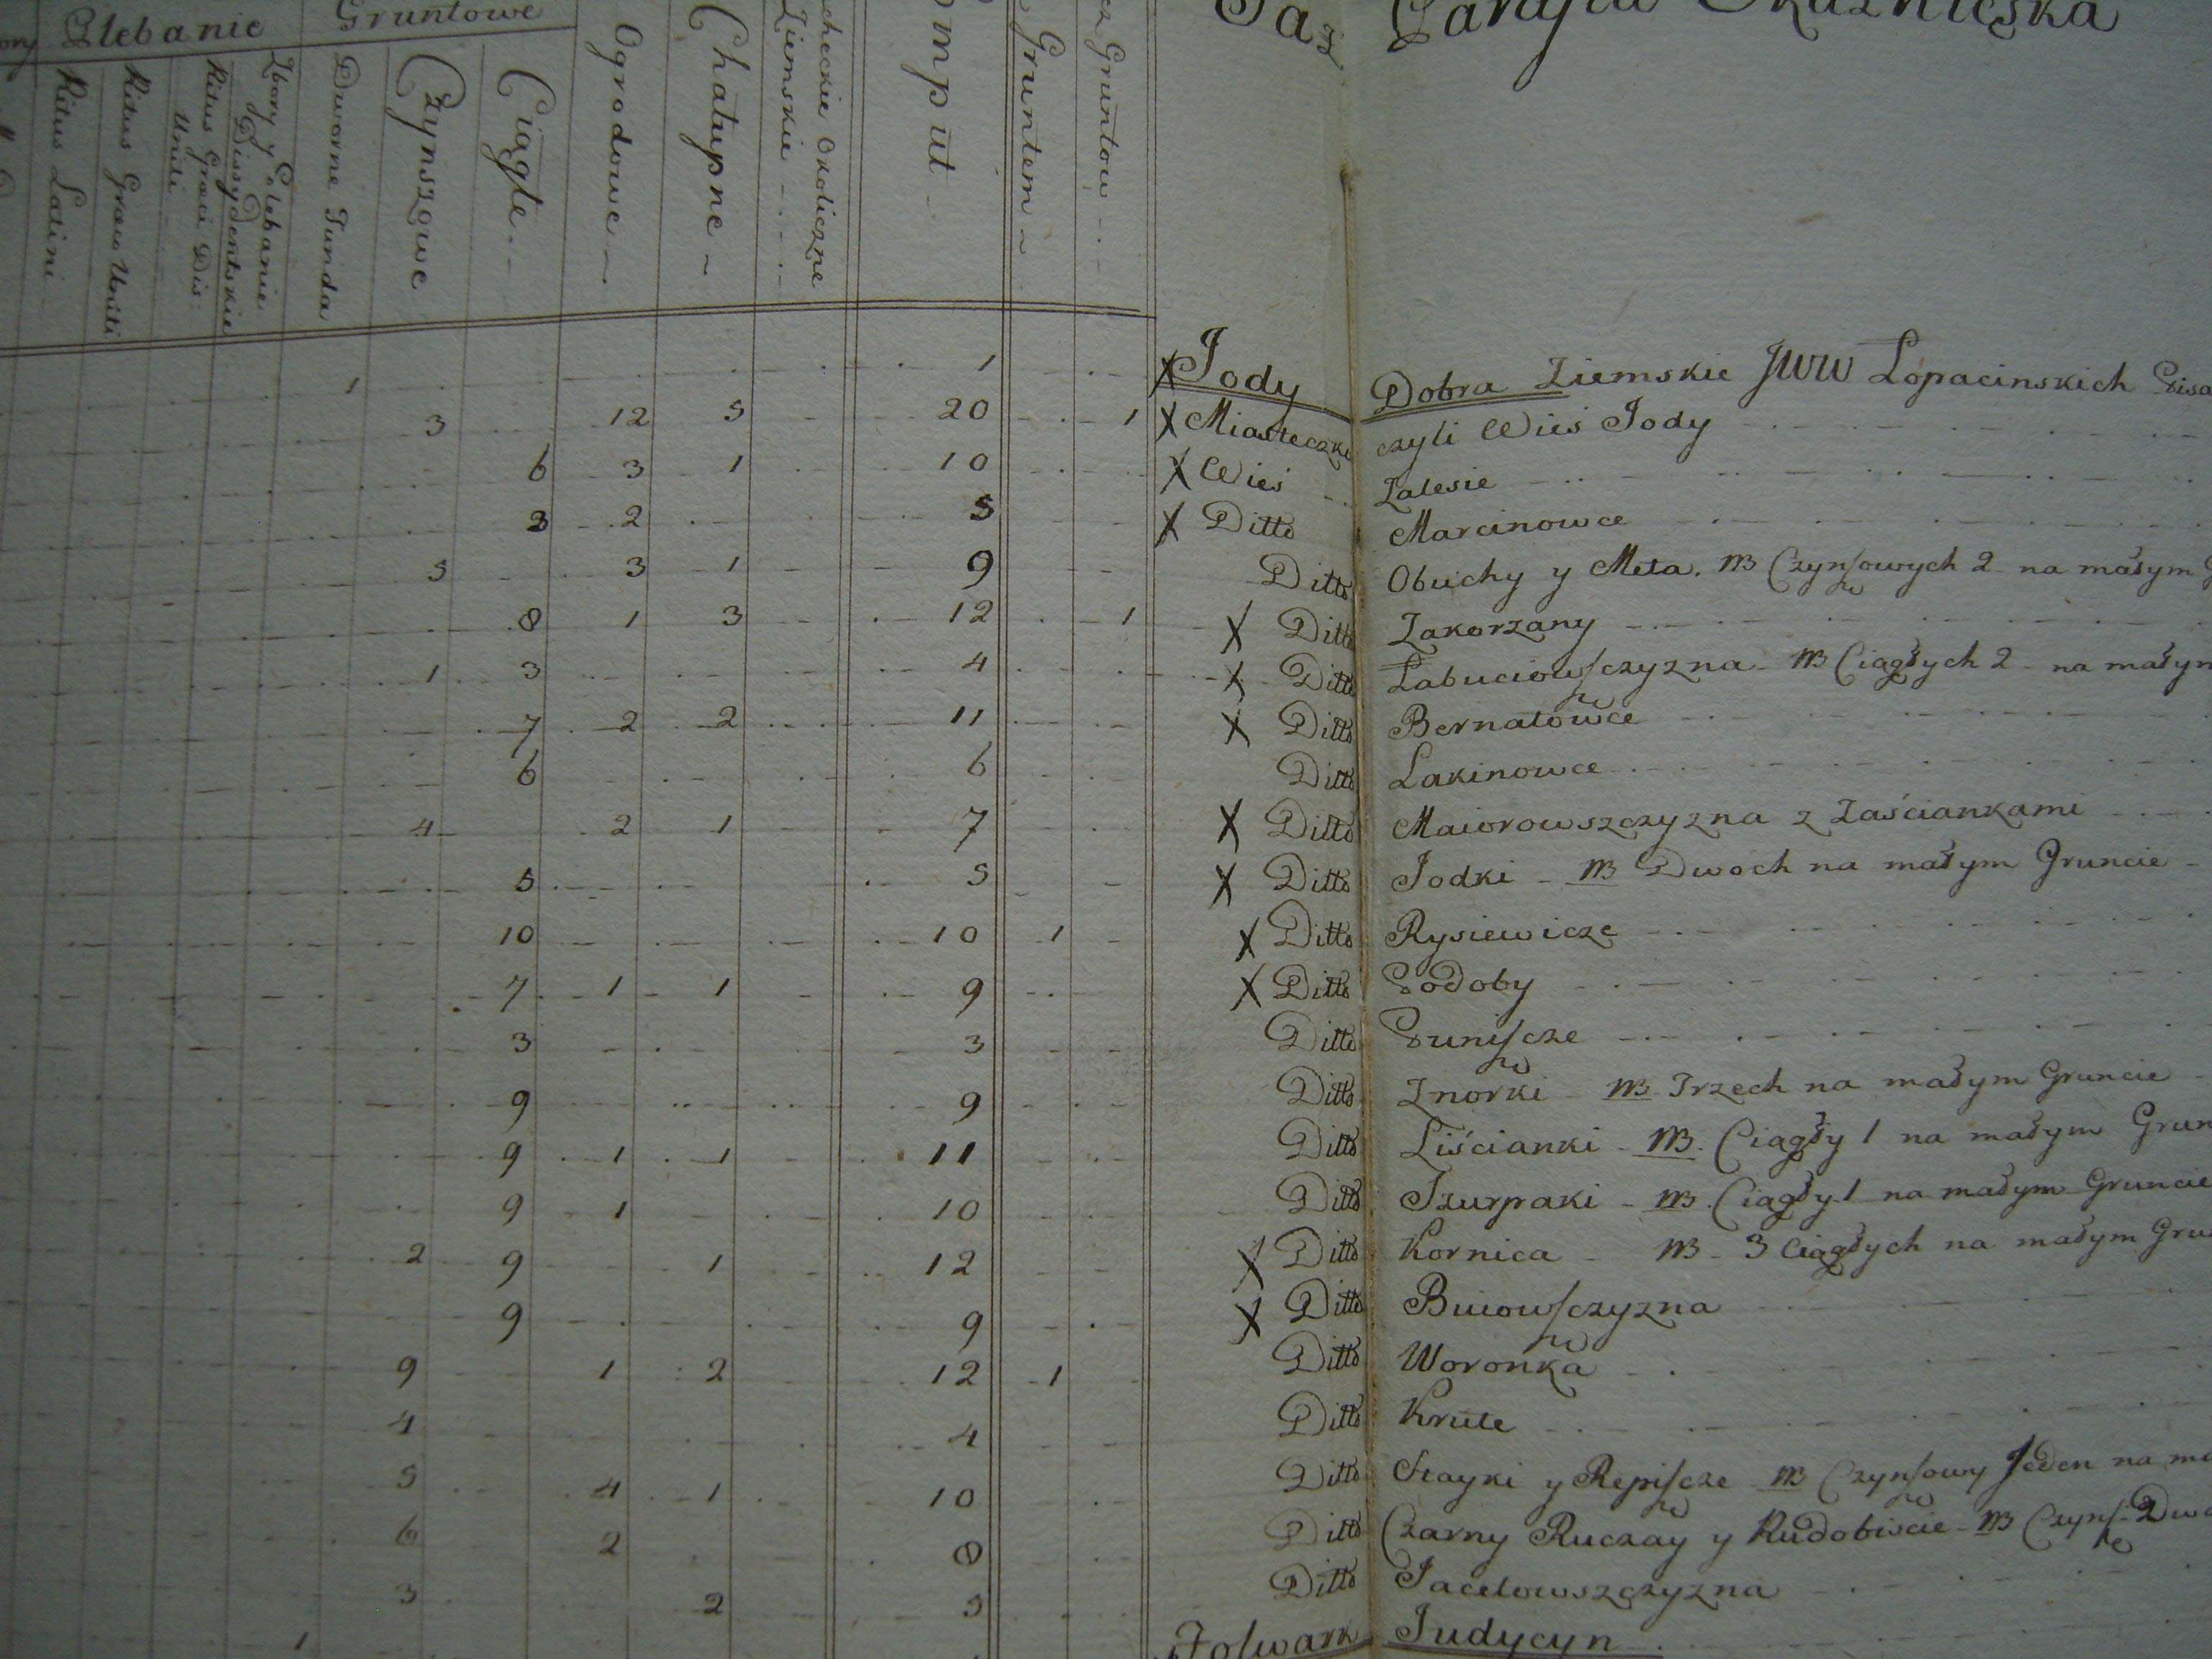 Plebanie Gruntowe
Ritus Latini
Ritus Græco Uniti
Ritus Græci Dis:
Uniti
Zbory y Plebanie
Dissydentskie
Dworne Funda
Czynszowe
Ciągłe
Ogrodowe
Chałupne
Okoliczne
Ziemskie
Gruntem
Gruntow
1 1 Jody Dobra Ziemskie JWW Łopacinskich
3 12 5 20 1 X Miasteczko czyli Wieś Jody
6 3 1 10 X Wieś Zalesie
3 2 5 X Ditto Marcinowce
5 3 1 9 Ditto Obuchy y Meta. NB Czynſzowych 2 na małym
8 1 3 12 1 X Ditto Zakorzany
1 3 4 X Ditto Łabuciowſzczyzna NB Ciągłych 2 na małym
7 2 2 11 X Ditto Bernatowce
6 6 Ditto Łakinowce
4 2 1 7 X Ditto Maiorowszczyzna z Zaściankami
5 5 X Ditto Jodki NB Dwoch na małym Gruncie
10 10 1 X Ditto Rysiewicze
7 1 1 9 X Ditto Podoby
3 3 Ditto Puniſzcze
9 9 Ditto Znorki NB Trzech na małym Gruncie
9 1 1 11 Ditto Liścianki NB. Ciągły 1 na małym
9 1 10 Ditto Szurpaki NB. Ciągły 1 na małym Gruncie
2 9 1 12 X Ditto Kornica NB 3 Ciągłych na małym
9 9 X Ditto Buiowſzczyzna
9 1 2 12 1 Ditto Woronka
4 4 Ditto Krute
5 4 1 10 Ditto Stayki y Repiſzcze NB Czynſzowy Jeden na
6 2 8 Ditto Czarny Ruczay y Rudobiście NB Czynſz.
3 2 5 Ditto Jacelowszczyzna
1 Folwark Judycyn